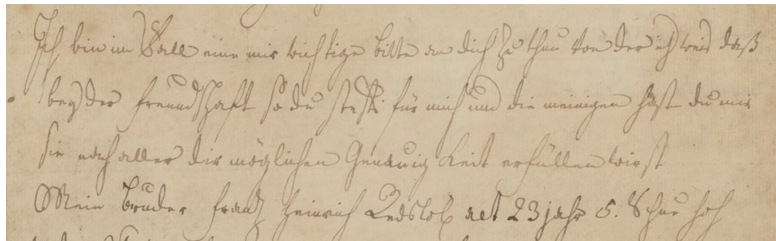 Ich bin im Fall eine mir wichtige bitte an dich zu thun von der ich weis daß
bey der freundschaft so du stets für mich und die meinigen hast du mir
sie nach aller dir möglichen Genauigkeit erfüllen wirst
Mein bruder frantz Heinrich Redslob aet 23 jahr 5. Schu hoch